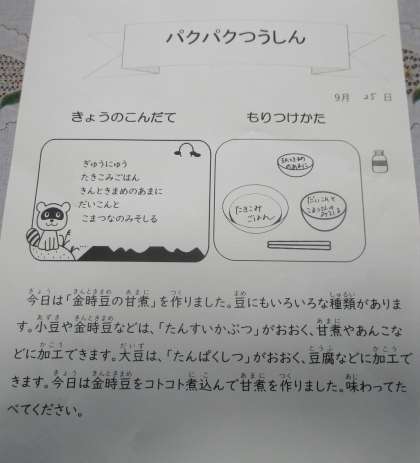 パクパクつうしん
9月 25 日
きょうのこんだて
もりつけかた
ぎゅうにゅう
たきこみごはん
きんときまめのあまに
だいこんと
こまつなのみそしる
きんときまめ
のあまに
たきこみ
ごはん
だいこんと
こまつなの
みそしる
今日は「金時豆の甘煮」を作りました。豆にもいろいろな種類がありま
す。小豆や金時豆などは、「たんすいかぶつ」がおおく、甘煮やあんこな
どに加工できます。大豆は、「たんぱくしつ」がおおく、豆腐などに加工で
きます。今日は金時豆をコトコト煮込んで甘煮を作りました。味わってた
べてください。